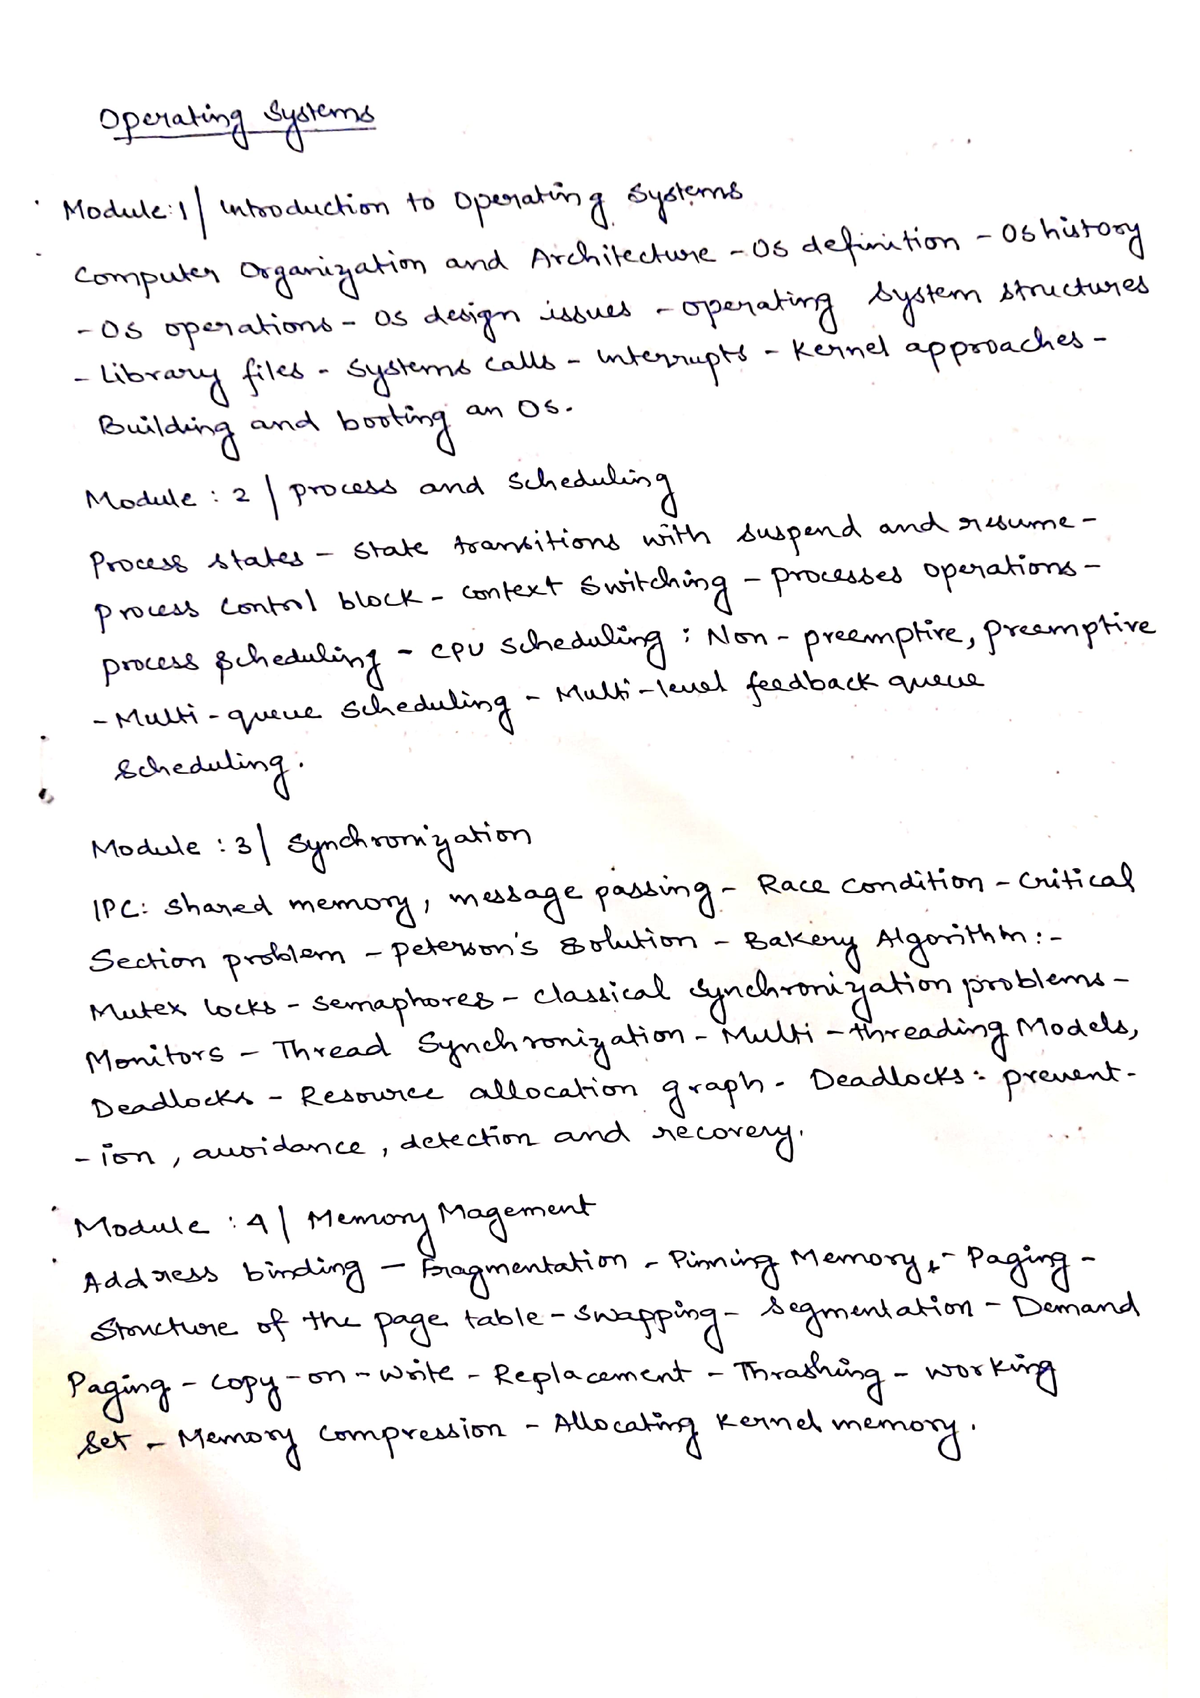 Operating Systems
Module:1| Introduction to Operating Systems
Computer Organization and Architecture - OS definition - OS history
- OS operations - OS design issues - operating system structures
- Library files - Systems calls - Interrupts - Kernel approaches -
Building and booting an OS.
Module : 2 | process and scheduling
Process states - State transitions with suspend and resume -
process control block - context switching - processes operations -
process scheduling - CPU scheduling : Non - preemptive, preemptive
- Multi - queue scheduling - Multi - level feedback queue
scheduling.
Module : 3 | Synchronization
IPC: Shared memory, message passing - Race condition - Critical
Section problem - Peterson's Solution - Bakery Algorithm : -
Mutex locks - semaphores - classical synchronization problems -
Monitors - Thread Synchronization - Multi - threading Models,
Deadlocks - Resource allocation graph - Deadlocks : prevent -
- ion , avoidance , detection and recovery.
Module : 4 | Memory Magement
Address binding - Fragmentation - Pinning Memory - Paging -
Structure of the page table - swapping - Segmentation - Demand
Paging - copy - on - write - Replacement - Thrashing - working
Set - Memory compression - Allocating Kernel memory.